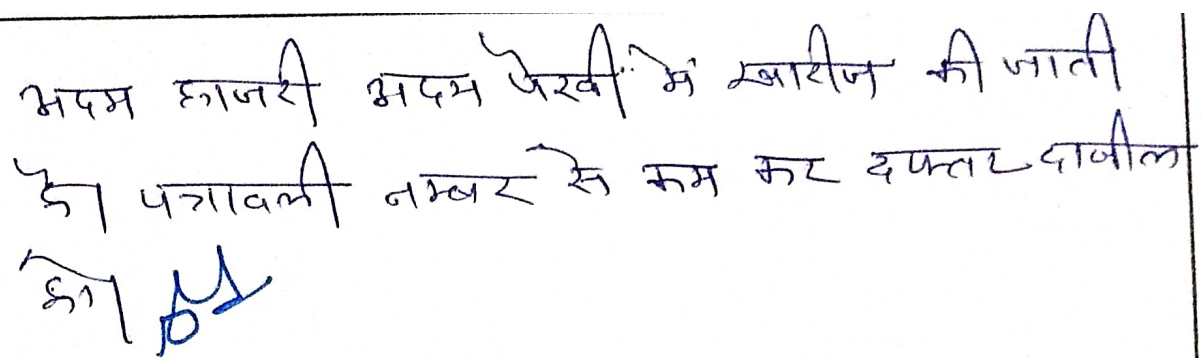 अदम हाजरी अदम पैरवी में खारीज की जाती
है। पत्रावली नम्बर से कम कर दफ्तर दाखील
हो।